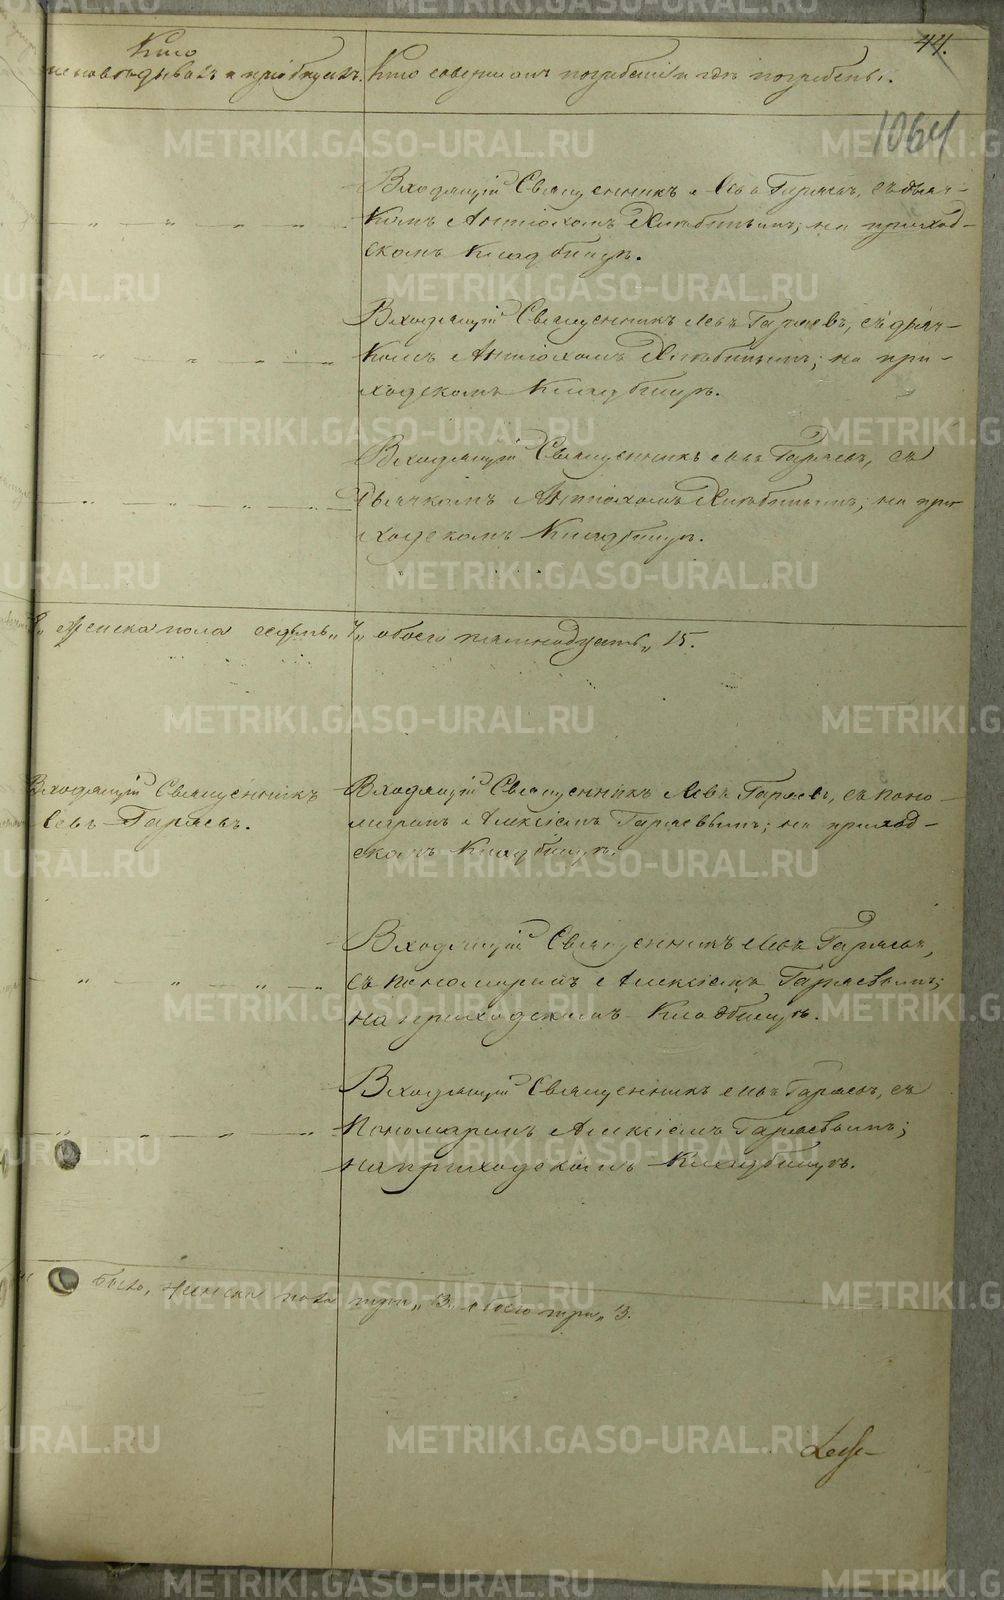 44.
Кто
исповѣдывалъ и пріобщалъ.
Кто совершалъ погребеніе и гдѣ погребены.
1064
Входящій Священникъ Левъ Гаряевъ, съ дьяч-
комъ Антіохомъ Хлѣбинымъ; на приход-
скомъ Кладбищѣ.
Входящій Священникъ Левъ Гаряевъ, съ дьяч-
комъ Антіохомъ Хлѣбинымъ; на при-
ходскомъ Кладбищѣ.
Входящій Священникъ Левъ Гаряевъ, съ
Дьячкомъ Антіохомъ Хлѣбинымъ; на при-
ходскомъ Кладбищѣ.
женска пола седмь„ 7„ обоего пятнадцать„ 15.
Входящій Священникъ
Левъ Гаряевъ.
Входящій Священникъ Левъ Гаряевъ, съ поно-
маремъ Алексіемъ Гаряевымъ; на приход-
скомъ Кладбищѣ.
Входящій Священникъ Левъ Гаряевъ,
съ пономаремъ Алексіемъ Гаряевымъ;
на приходскомъ Кладбищѣ.
Входящій Священникъ Левъ Гаряевъ, съ
Пономаремъ Алексіемъ Гаряевымъ;
на приходскомъ Кладбищѣ.
было, женска пола три„ 3. обоего три„ 3.
METRIKI.GASO-URAL.RU